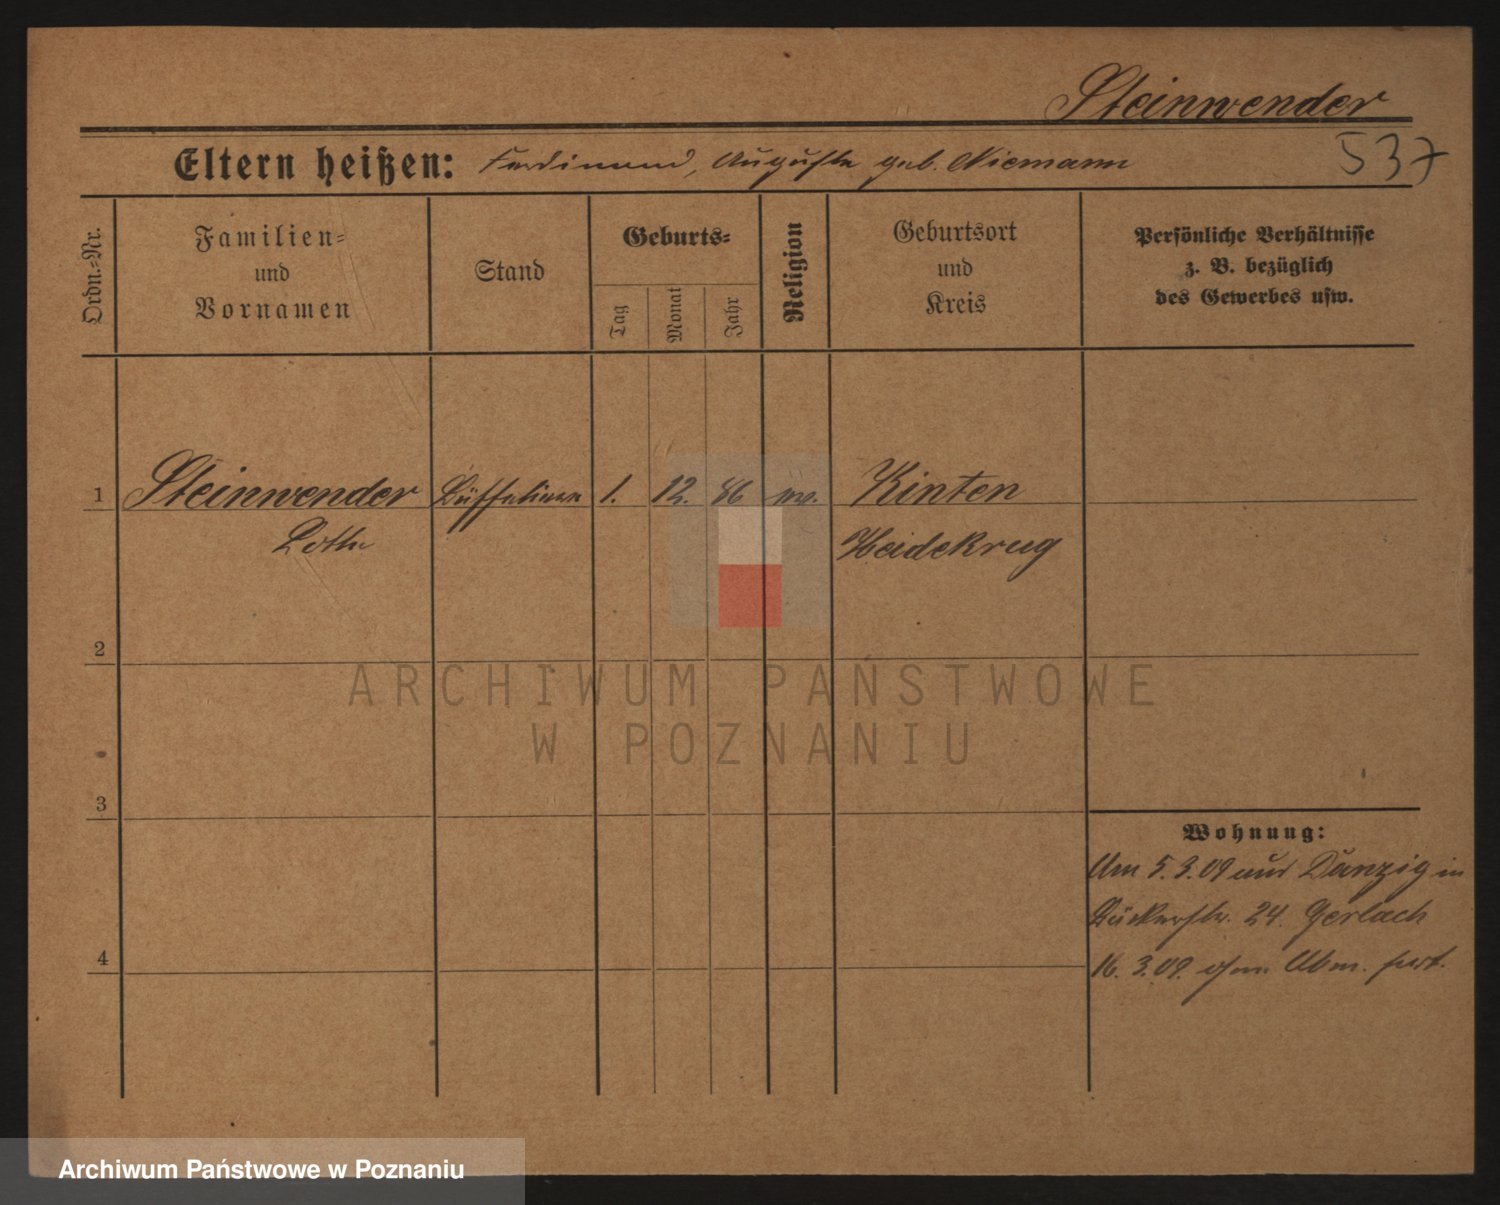 Steinwender
Eltern heißen: Ferdinand, Auguste geb. Niemann
537
Ordn.-Nr.
Familien-
und
Vornamen
Stand
Geburts-
Tag
Monat
Jahr
Religion
Geburtsort
und
Kreis
Persönliche Verhältnisse
z. B. bezüglich
des Gewerbes usw.
1 Steinwender 1. 12. 86 ev. Kinten
Heidekrug
2
ARCHIWUM PAŃSTWOWE
W POZNANIU
3
Wohnung:
Am 5.3.09 aus Danzig in
24. Gerlach
4
16.3.09. ohne Abm. fort.
Archiwum Państwowe w Poznaniu